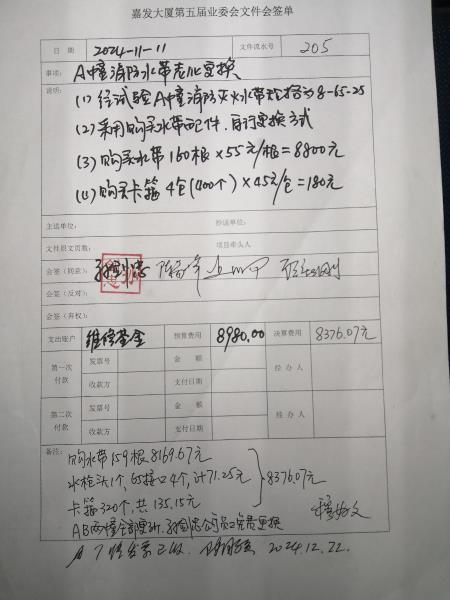 嘉发大厦第五届业委会文件会签单
日期 2024-11-11 文件流水号 205
事项: A幢消防水带老化更换
说明: (1) 经试验A幢消防灭火水带规格为8-65-25
(2) 采用购买水带配件,自行更换方式
(3) 购买水带160根×55元/根=8800元
(4) 购买卡箍4包(400个)×45元/包=180元
主送单位: 抄送单位:
文件原文页数: 项目牵头人
会签(同意):
会签(反对):
会签(弃权):
支出账户 维修基金 预算费用 8980.00 决算费用 8376.07元
第一次付款 发票号 金额 经办人
收款方 支付日期
第二次付款 发票号 金额 经办人
收款方 支付日期
备注: 购水带159根8169.67元
水枪头1个,65接口4个,计71.25元 8376.07元
卡箍320个,共135.15元
AB两幢全部更新,公司员工免费更换
2024.12.22.